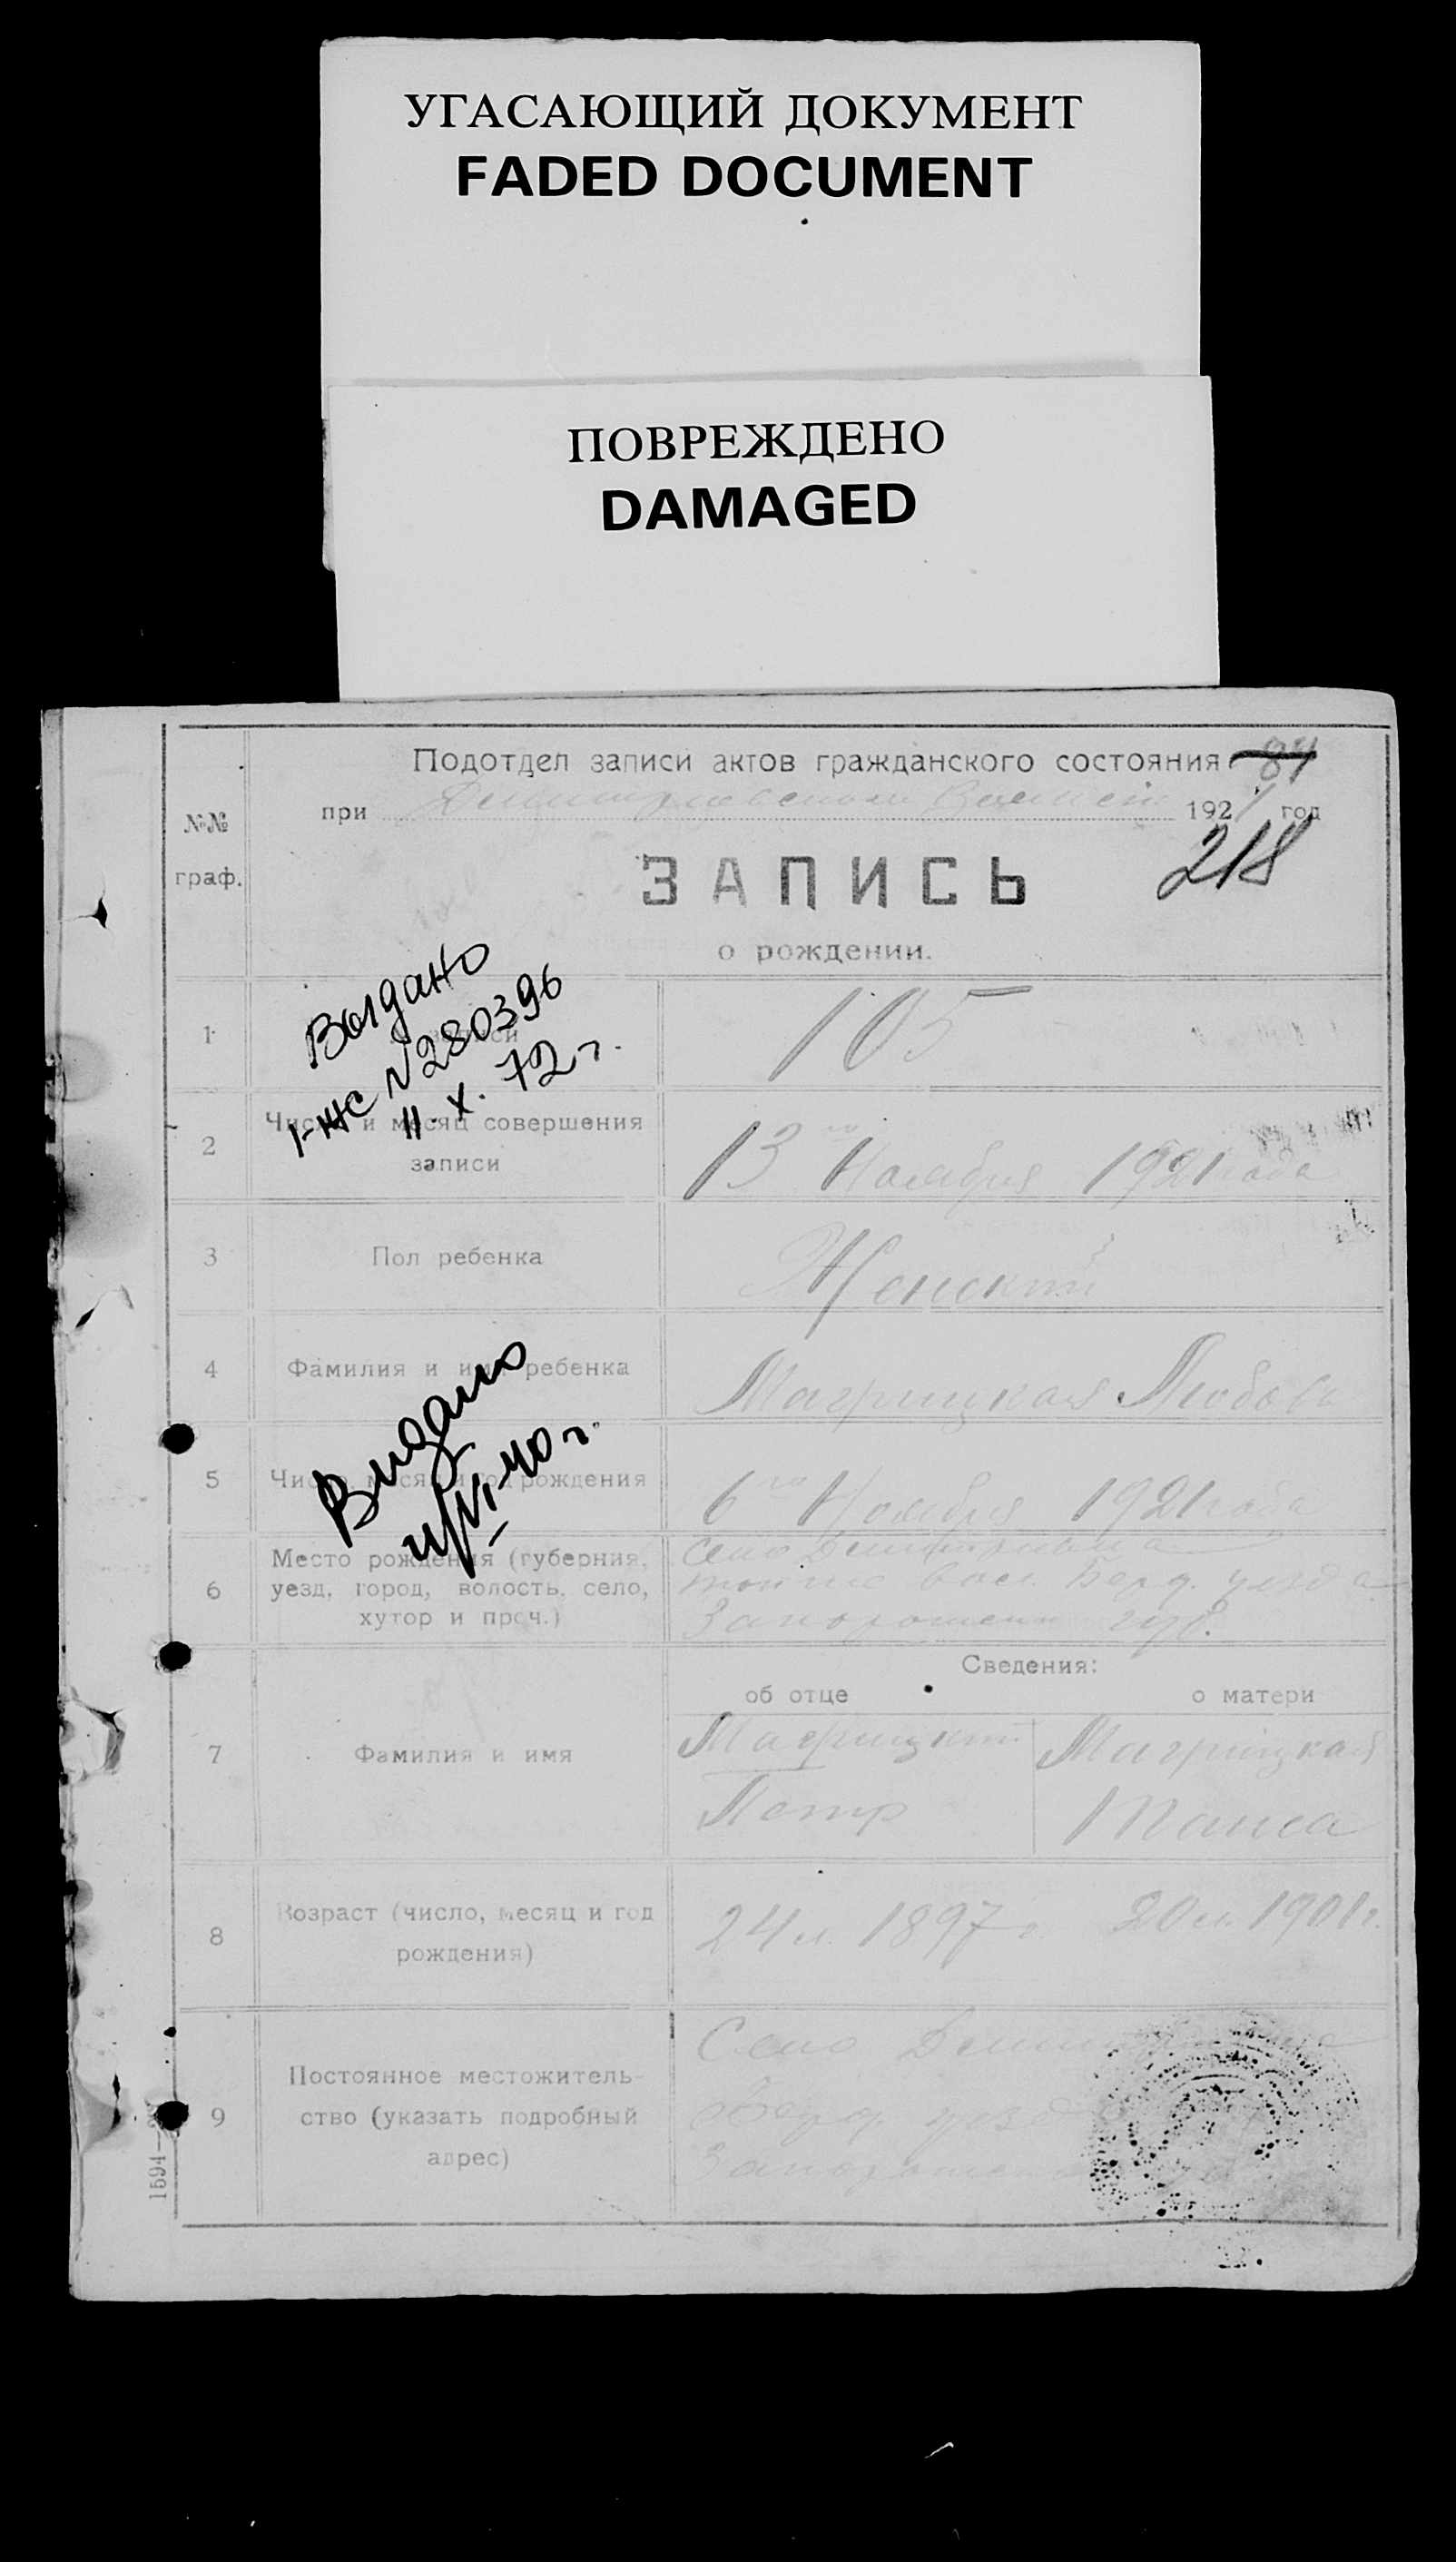 УГАСАЮЩИЙ ДОКУМЕНТ
FADED DOCUMENT
ПОВРЕЖДЕНО
DAMAGED
Подотдел записи актов гражданского состояния 84
при 1921 год
№№
граф.
218
ЗАПИСЬ
о рождении.
Выдано
I-ЖС №280396
11. X. 72 г.
1 записи 105
2 Число и месяц совершения
записи
13го Ноября 1921 года
3 Пол ребенка Женский
4 Фамилия и имя ребенка Магрицкая Любовь
Видано
VI-40 г.
5 Число месяц и год рождения 6го Ноября 1921 года
6 Место рождения (губерния,
уезд, город, волость, село,
хутор и проч.)
Село
вол. Берд. уезда
губ.
Сведения:
об отце о матери
7 Фамилия и имя
Магрицкий Магрицкая
Петр Таиса
8 Возраст (число, месяц и год
рождения)
24 л. 1897 г. 20 л. 1901 г.
9 Постоянное местожитель-
ство (указать подробный
адрес)
Село
1594